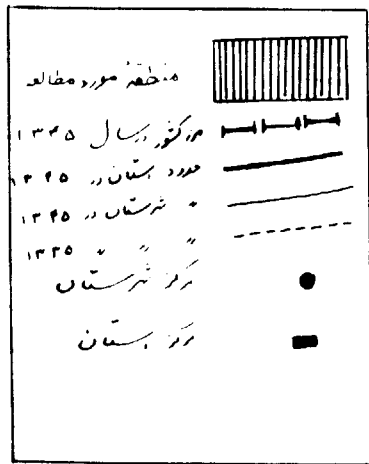 منطقهٔ مورد مطالعه
مرز کشور در سال ۱۳۴۵
حدود استان در ۱۳۴۵
〃 شهرستان در ۱۳۴۵
〃 〃 〃 ۱۳۳۵
مرکز شهرستان
مرکز استان